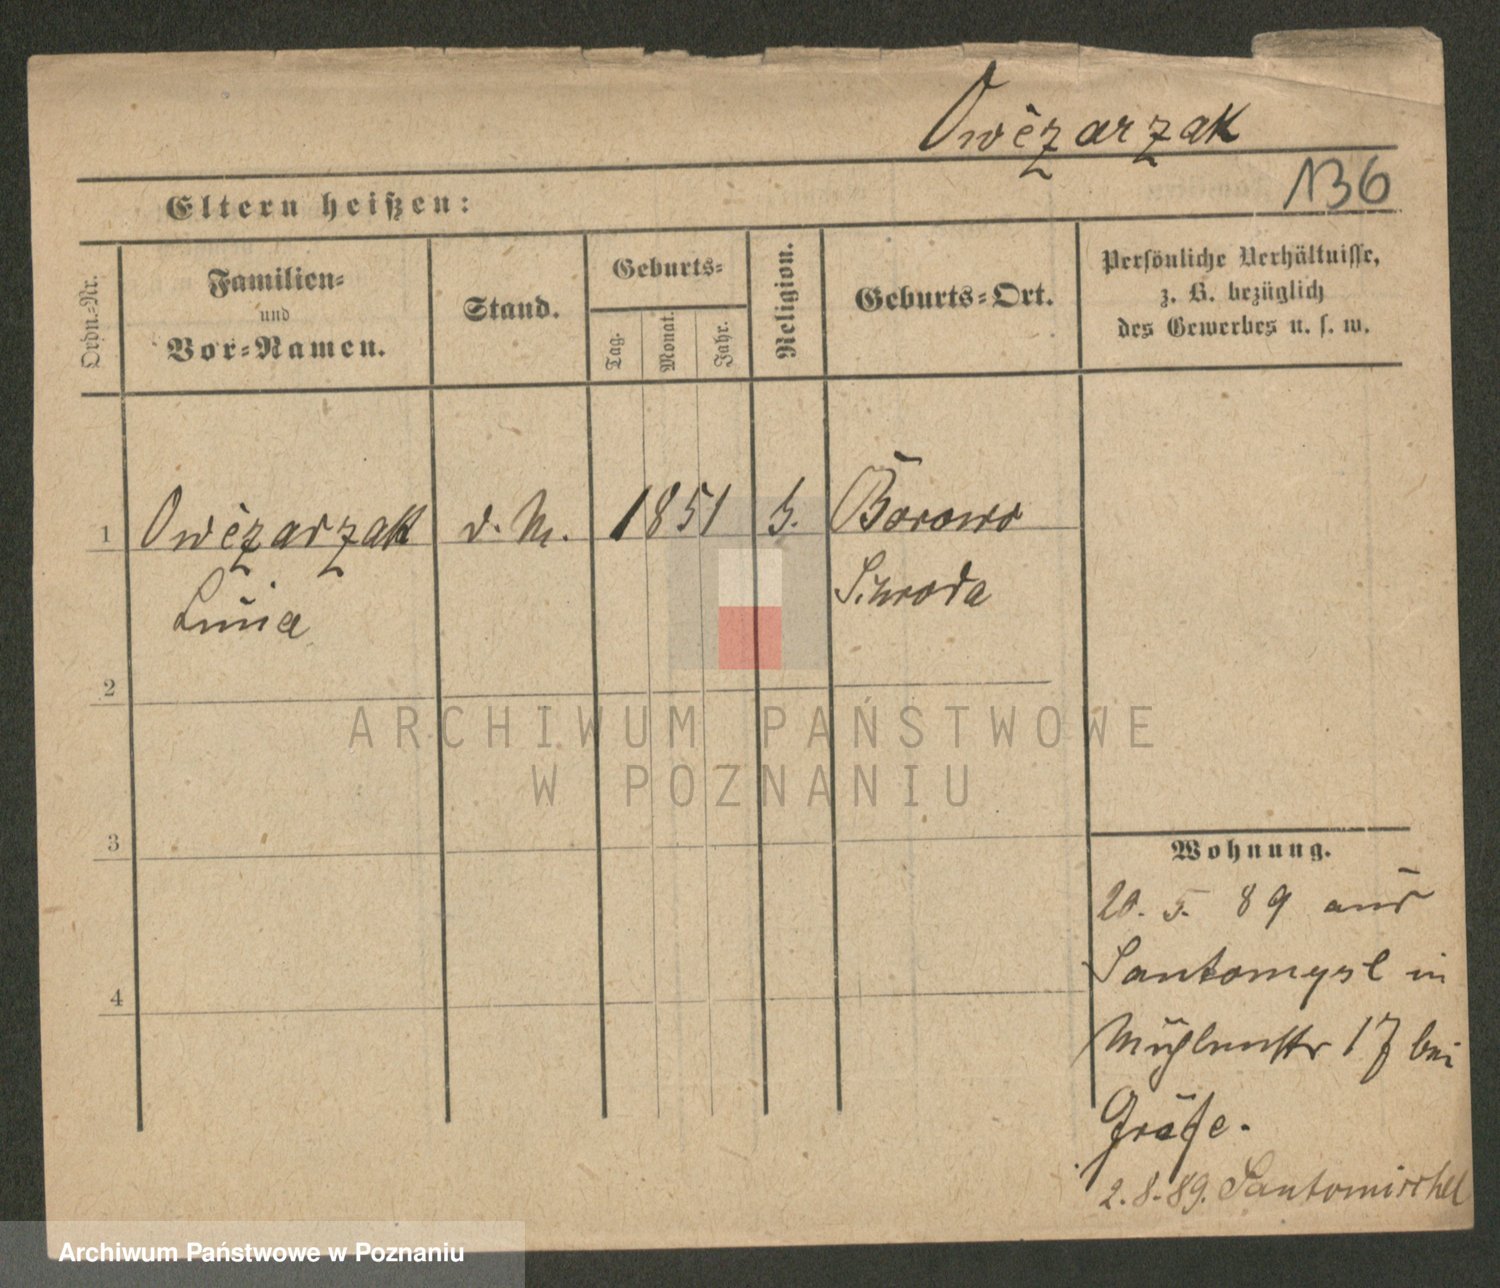 Owczarzak
136
Eltern heißen:
Ordn.-Nr.
Familien-
und
Vor-Namen.
Stand.
Geburts-
Tag.
Monat.
Jahr.
Religion.
Geburts-Ort.
Persönliche Verhältnisse,
z. B. bezüglich
des Gewerbes u. s. w.
1
Owczarzak
d. M.
1851
Borowo
Szroda
2
3
4
Wohnung.
20. 5. 89 aus
Santomysl in
Mühlenstr 17 bei
Gräfe.
2. 8. 89. Santomischel
ARCHIWUM PAŃSTWOWE
W POZNANIU
Archiwum Państwowe w Poznaniu